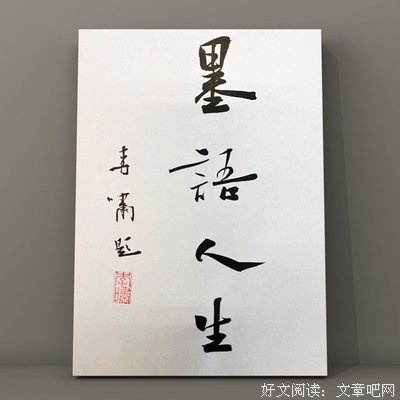 墨語人生
李嘯题
好文阅读：文章吧网